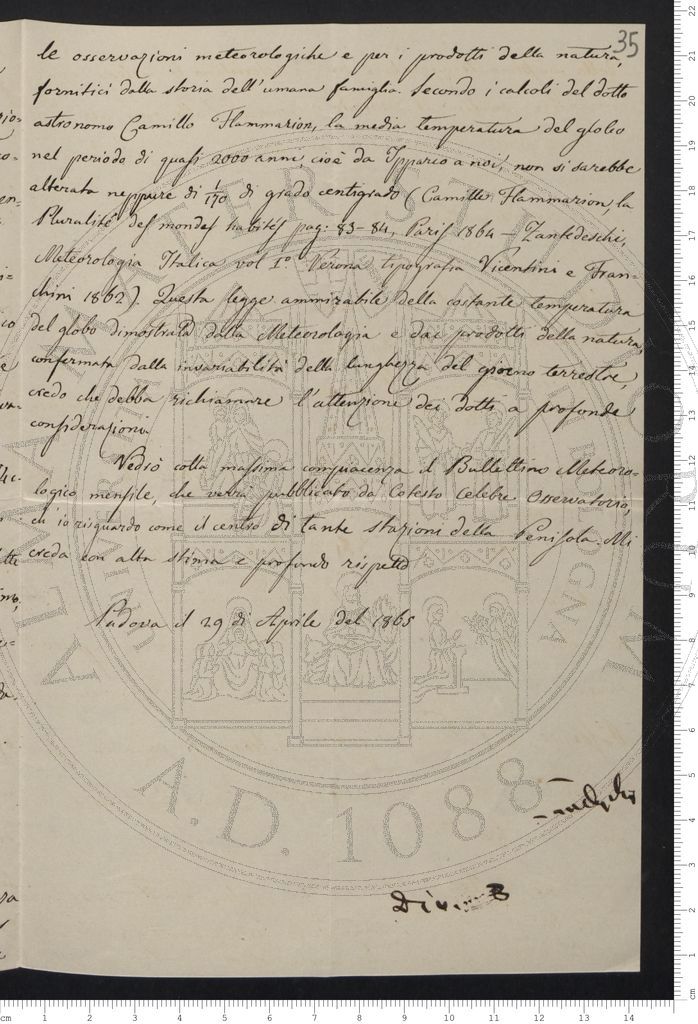 35
le osservazioni meteorologiche e per i prodotti della natura,
fornitici dalla storia dell'umana famiglia. Secondo i calcoli del dotto
astronomo Camillo Flammarion, la media temperatura del globo
nel periodo di quasi 2000 anni, cioè da Ipparco a noi, non si sarebbe
alterata neppure di 1/170 di grado centigrado (Camille Flammarion, la
Pluralité des mondes habités pag: 83-84, Paris 1864 — Zantedeschi,
Meteorologia Italica vol I.° Verona tipografia Vicentini e Fran-
chini 1862). Questa legge ammirabile della costante temperatura
del globo dimostrata dalla Meteorologia e dai prodotti della natura,
confermata dalla invariabilità della lunghezza del giorno terrestre,
credo che debba richiamare l'attenzione dei dotti a profonde
considerazioni.
Vedrò colla massima compiacenza il Bullettino Meteoro-
logico mensile, che verrà pubblicato da Cotesto celebre Osservatorio,
ch'io risguardo come il centro di tante stazioni della Penisola. Mi
creda con alta stima e profondo rispetto
Padova il 29 di Aprile del 1865
ALMA MATER STUDIORUM
A.D. 1088